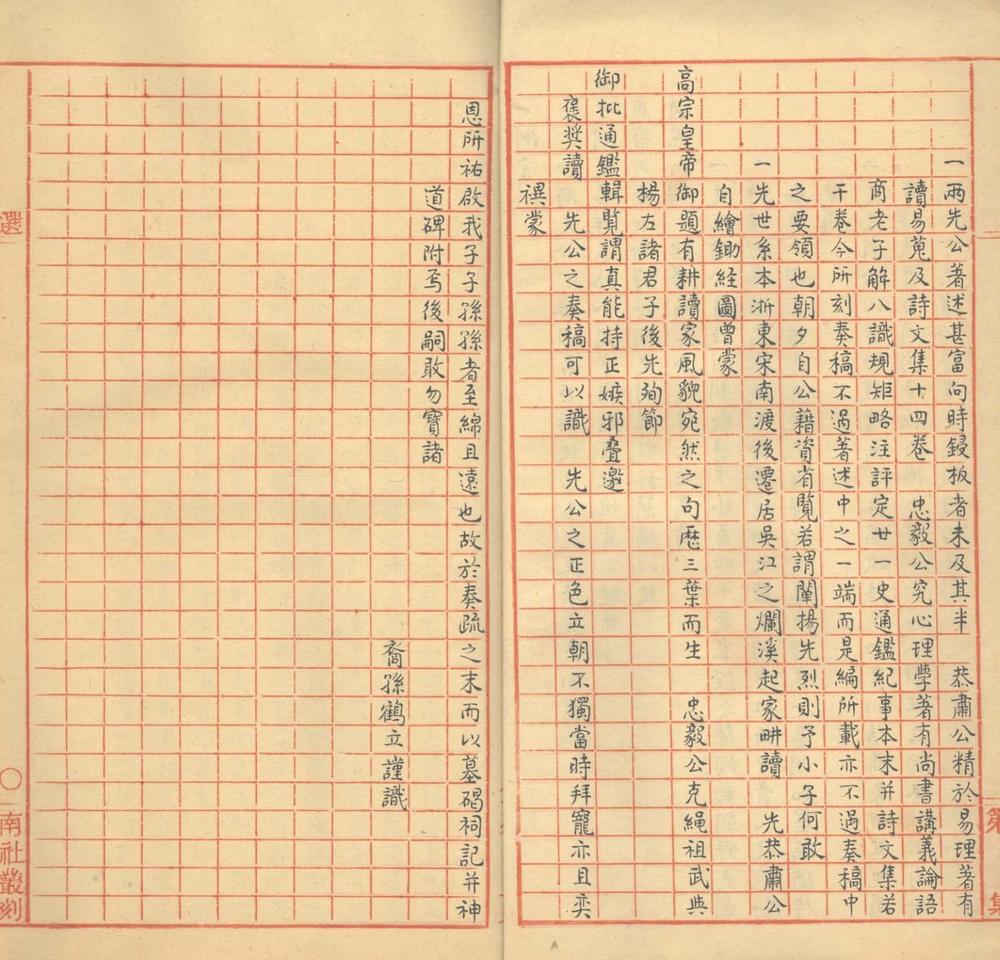 一兩先公著述甚富向時鋟板者未及其半　恭肅公精於易理著有
讀易蒐及詩文集十四卷　忠毅公究心理學著有尚書講義論語
商老子解八識規矩略注評定廿一史通鑑紀事本末并詩文集若
干卷今所刻奏稿不過著述中之一端而是編所載亦不過奏稿中
之要領也朝夕自公藉資省覽若謂闡揚先烈則予小子何敢
一先世系本浙東宋南渡後遷居吳江之爛溪起家畊讀　先恭肅公
自繪鋤経圖曾蒙
高宗皇帝御題有耕讀家風貌宛然之句歷三葉而生　忠毅公克繩祖武與
楊左諸君子後先殉節
御批通鑑輯覽謂真能持正嫉邪疊邀
褒奬讀　先公之奏稿可以識　先公之正色立朝不獨當時拜寵亦且奕
禩蒙
恩所祐啟我子子孫孫者至綿且遠也故於奏疏之末而以墓碣祠記并神
道碑附焉後嗣敢勿寶諸
裔孫鶴立謹識
選
〇
南社叢刻
第
集